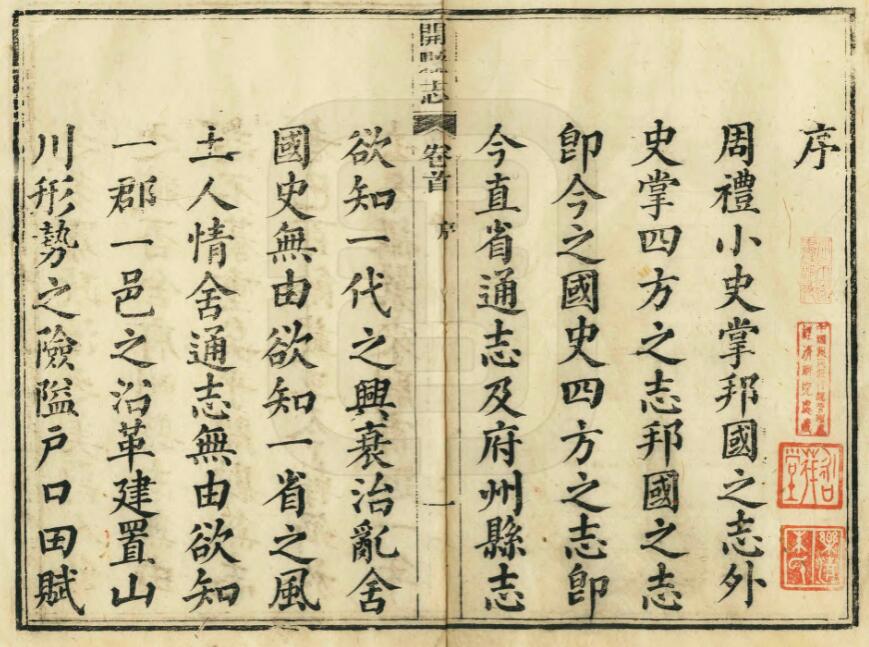 序
周禮小史掌邦國之志外
史掌四方之志邦國之志
卽今之國史四方之志卽
今直省通志及府州縣志
開縣志 卷首 序 一
欲知一代之興衰治亂舍
國史無由欲知一省之風
土人情舍通志無由欲知
一郡一邑之沿革建置山
川形勢之險隘戶口田賦